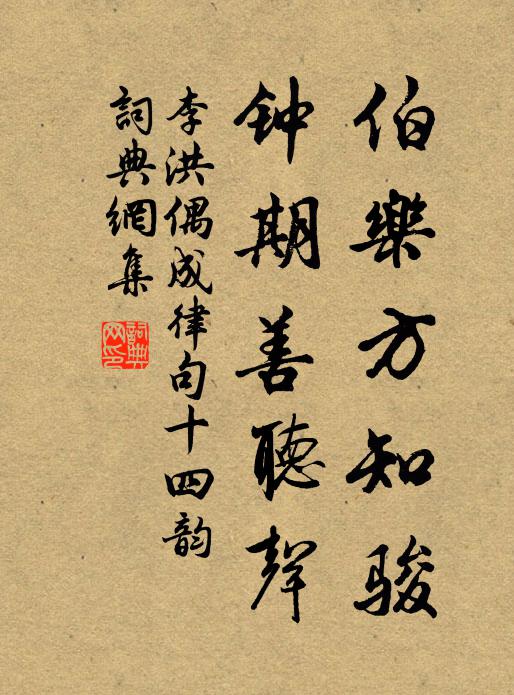 伯樂方知駿
钟期善聽聲
李洪偶成律句十四韵
詞典網集
詞典网印